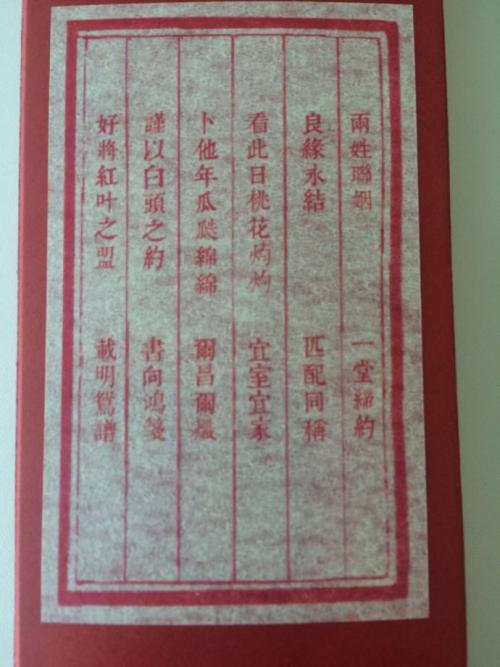 兩姓聯姻 一堂締約
良緣永結 匹配同稱
看此日桃花灼灼 宜室宜家
卜他年瓜瓞綿綿 爾昌爾熾
謹以白頭之約 書向鴻箋
好將紅叶之盟 載明鴛譜